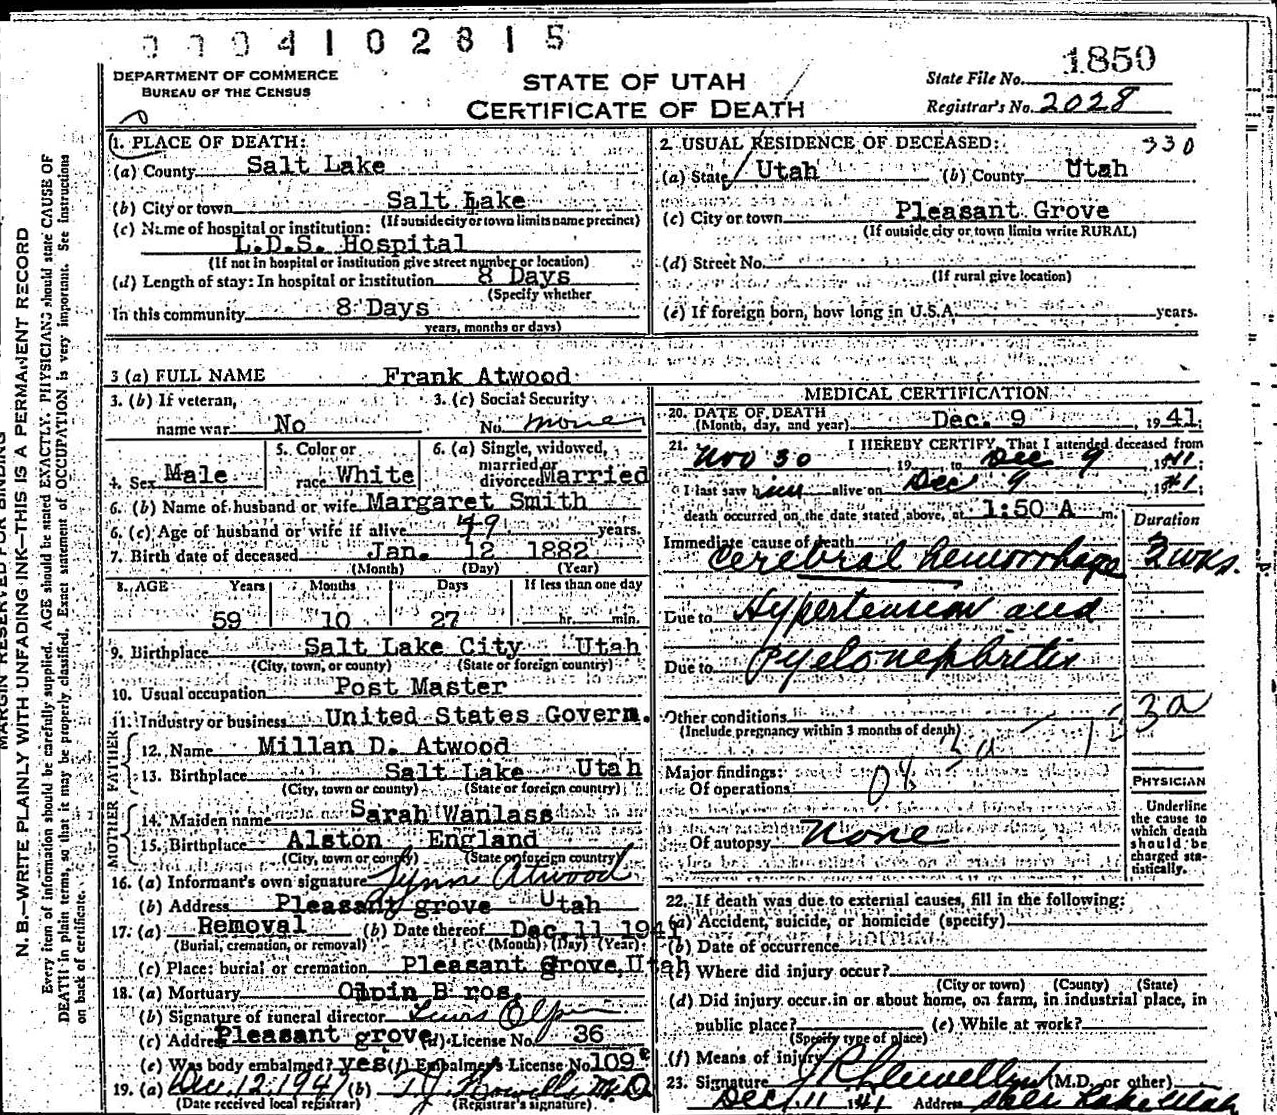 0004102815
DEPARTMENT OF COMMERCE
BUREAU OF THE CENSUS
STATE OF UTAH
CERTIFICATE OF DEATH
State File No. 1850
Registrar's No. 2028
1. PLACE OF DEATH:
(a) County Salt Lake
(b) City or town Salt Lake
(If outside city or town limits name precinct)
(c) Name of hospital or institution:
L.D.S. Hospital
(If not in hospital or institution give street number or location)
(d) Length of stay: In hospital or institution 8 Days
(Specify whether
In this community 8 Days
years, months or days)
2. USUAL RESIDENCE OF DECEASED: 330
(a) State Utah (b) County Utah
(c) City or town Pleasant Grove
(If outside city or town limits write RURAL)
(d) Street No.
(If rural give location)
(e) If foreign born, how long in U.S.A. years.
3 (a) FULL NAME Frank Atwood
3. (b) If veteran, 3. (c) Social Security
name war No No. none
4. Sex Male 5. Color or race White 6. (a) Single, widowed, married or divorced Married
6. (b) Name of husband or wife Margaret Smith
6. (c) Age of husband or wife if alive 49 years.
7. Birth date of deceased Jan. 12 1882
(Month) (Day) (Year)
8. AGE Years Months Days If less than one day
59 10 27 hr. min.
9. Birthplace Salt Lake City Utah
(City, town, or county) (State or foreign country)
10. Usual occupation Post Master
11. Industry or business United States Govern.
FATHER
12. Name Millan D. Atwood
13. Birthplace Salt Lake Utah
(City, town or county) (State or foreign country)
MOTHER
14. Maiden name Sarah Wanlass
15. Birthplace Alston England
(City, town or county) (State or foreign country)
16. (a) Informant's own signature Lynn Atwood
(b) Address Pleasant grove Utah
17. (a) Removal (b) Date thereof Dec. 11 1941
(Burial, cremation, or removal) (Month) (Day) (Year)
(c) Place: burial or cremation Pleasant grove, Utah
18. (a) Mortuary Olpin Bros.
(b) Signature of funeral director Lewis Olpin
(c) Address Pleasant grove (d) License No. 36
(e) Was body embalmed? yes (f) Embalmer's License No. 109
19. (a) Dec. 12, 1941 (b) T.J. Howells M.D.
(Date received local registrar) (Registrar's signature)
MEDICAL CERTIFICATION
20. DATE OF DEATH
(Month, day, and year) Dec. 9 1941
21. I HEREBY CERTIFY, That I attended deceased from
Nov 30 19 to Dec 9 1941;
I last saw him alive on Dec 9 1941;
death occurred on the date stated above, at 1:50 A m.
Duration
Immediate cause of death
Cerebral hemorrhage 2 wks.
Due to Hypertension and
Due to Pyelonephritis
Other conditions
(Include pregnancy within 3 months of death)
3a
Major findings:
Of operations
Of autopsy none
PHYSICIAN
Underline
the cause to
which death
should be
charged sta-
tistically.
22. If death was due to external causes, fill in the following:
(a) Accident, suicide, or homicide (specify)
(b) Date of occurrence
(c) Where did injury occur?
(City or town) (County) (State)
(d) Did injury occur in or about home, on farm, in industrial place, in
public place? (e) While at work?
(Specify type of place)
(f) Means of injury
23. Signature J R Llewellyn (M.D. or other)
Dec 11 1941 Address Salt Lake Utah
MARGIN RESERVED FOR BINDING
N. B.—WRITE PLAINLY WITH UNFADING INK—THIS IS A PERMANENT RECORD
Every item of information should be carefully supplied. AGE should be stated EXACTLY. PHYSICIANS should state CAUSE OF
DEATH in plain terms, so that it may be properly classified. Exact statement of OCCUPATION is very important. See instructions
on back of certificate.